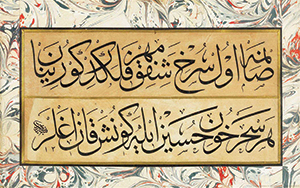 صانمه اول سرخ شفق مهر فلكده كورينان
هر سحر خون حسين ايله كونش قان اغلر